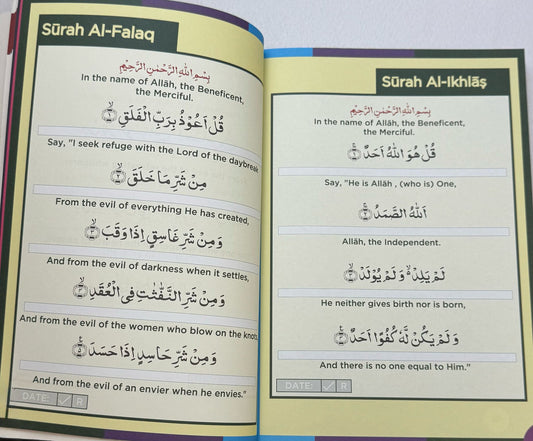 Sūrah Al-Falaq
بِسْمِ اللهِ الرَّحْمٰنِ الرَّحِيْمِ
In the name of Allāh, the Beneficent,
the Merciful.
قُلْ اَعُوْذُ بِرَبِّ الْفَلَقِ ۙ﴿۱﴾
Say, "I seek refuge with the Lord of the daybreak
مِنْ شَرِّ مَا خَلَقَ ۙ﴿۲﴾
From the evil of everything He has created,
وَ مِنْ شَرِّ غَاسِقٍ اِذَا وَقَبَ ۙ﴿۳﴾
And from the evil of darkness when it settles,
وَ مِنْ شَرِّ النَّفّٰثٰتِ فِي الْعُقَدِ ۙ﴿۴﴾
And from the evil of the women who blow on the knots
وَ مِنْ شَرِّ حَاسِدٍ اِذَا حَسَدَ ﴿۵﴾
And from the evil of an envier when he envies."
DATE: R
Sūrah Al-Ikhlāṣ
بِسْمِ اللهِ الرَّحْمٰنِ الرَّحِيْمِ
In the name of Allāh, the Beneficent,
the Merciful.
قُلْ هُوَ اللهُ اَحَدٌ ﴿۱﴾
Say, "He is Allāh , (who is) One,
اَللهُ الصَّمَدُ ﴿۲﴾
Allāh, the Independent.
لَمْ يَلِدْ ۙ وَ لَمْ يُوْلَدْ ۙ﴿۳﴾
He neither gives birth nor is born,
وَ لَمْ يَكُنْ لَّهٗ كُفُوًا اَحَدٌ ﴿۴﴾
And there is no one equal to Him."
DATE: R